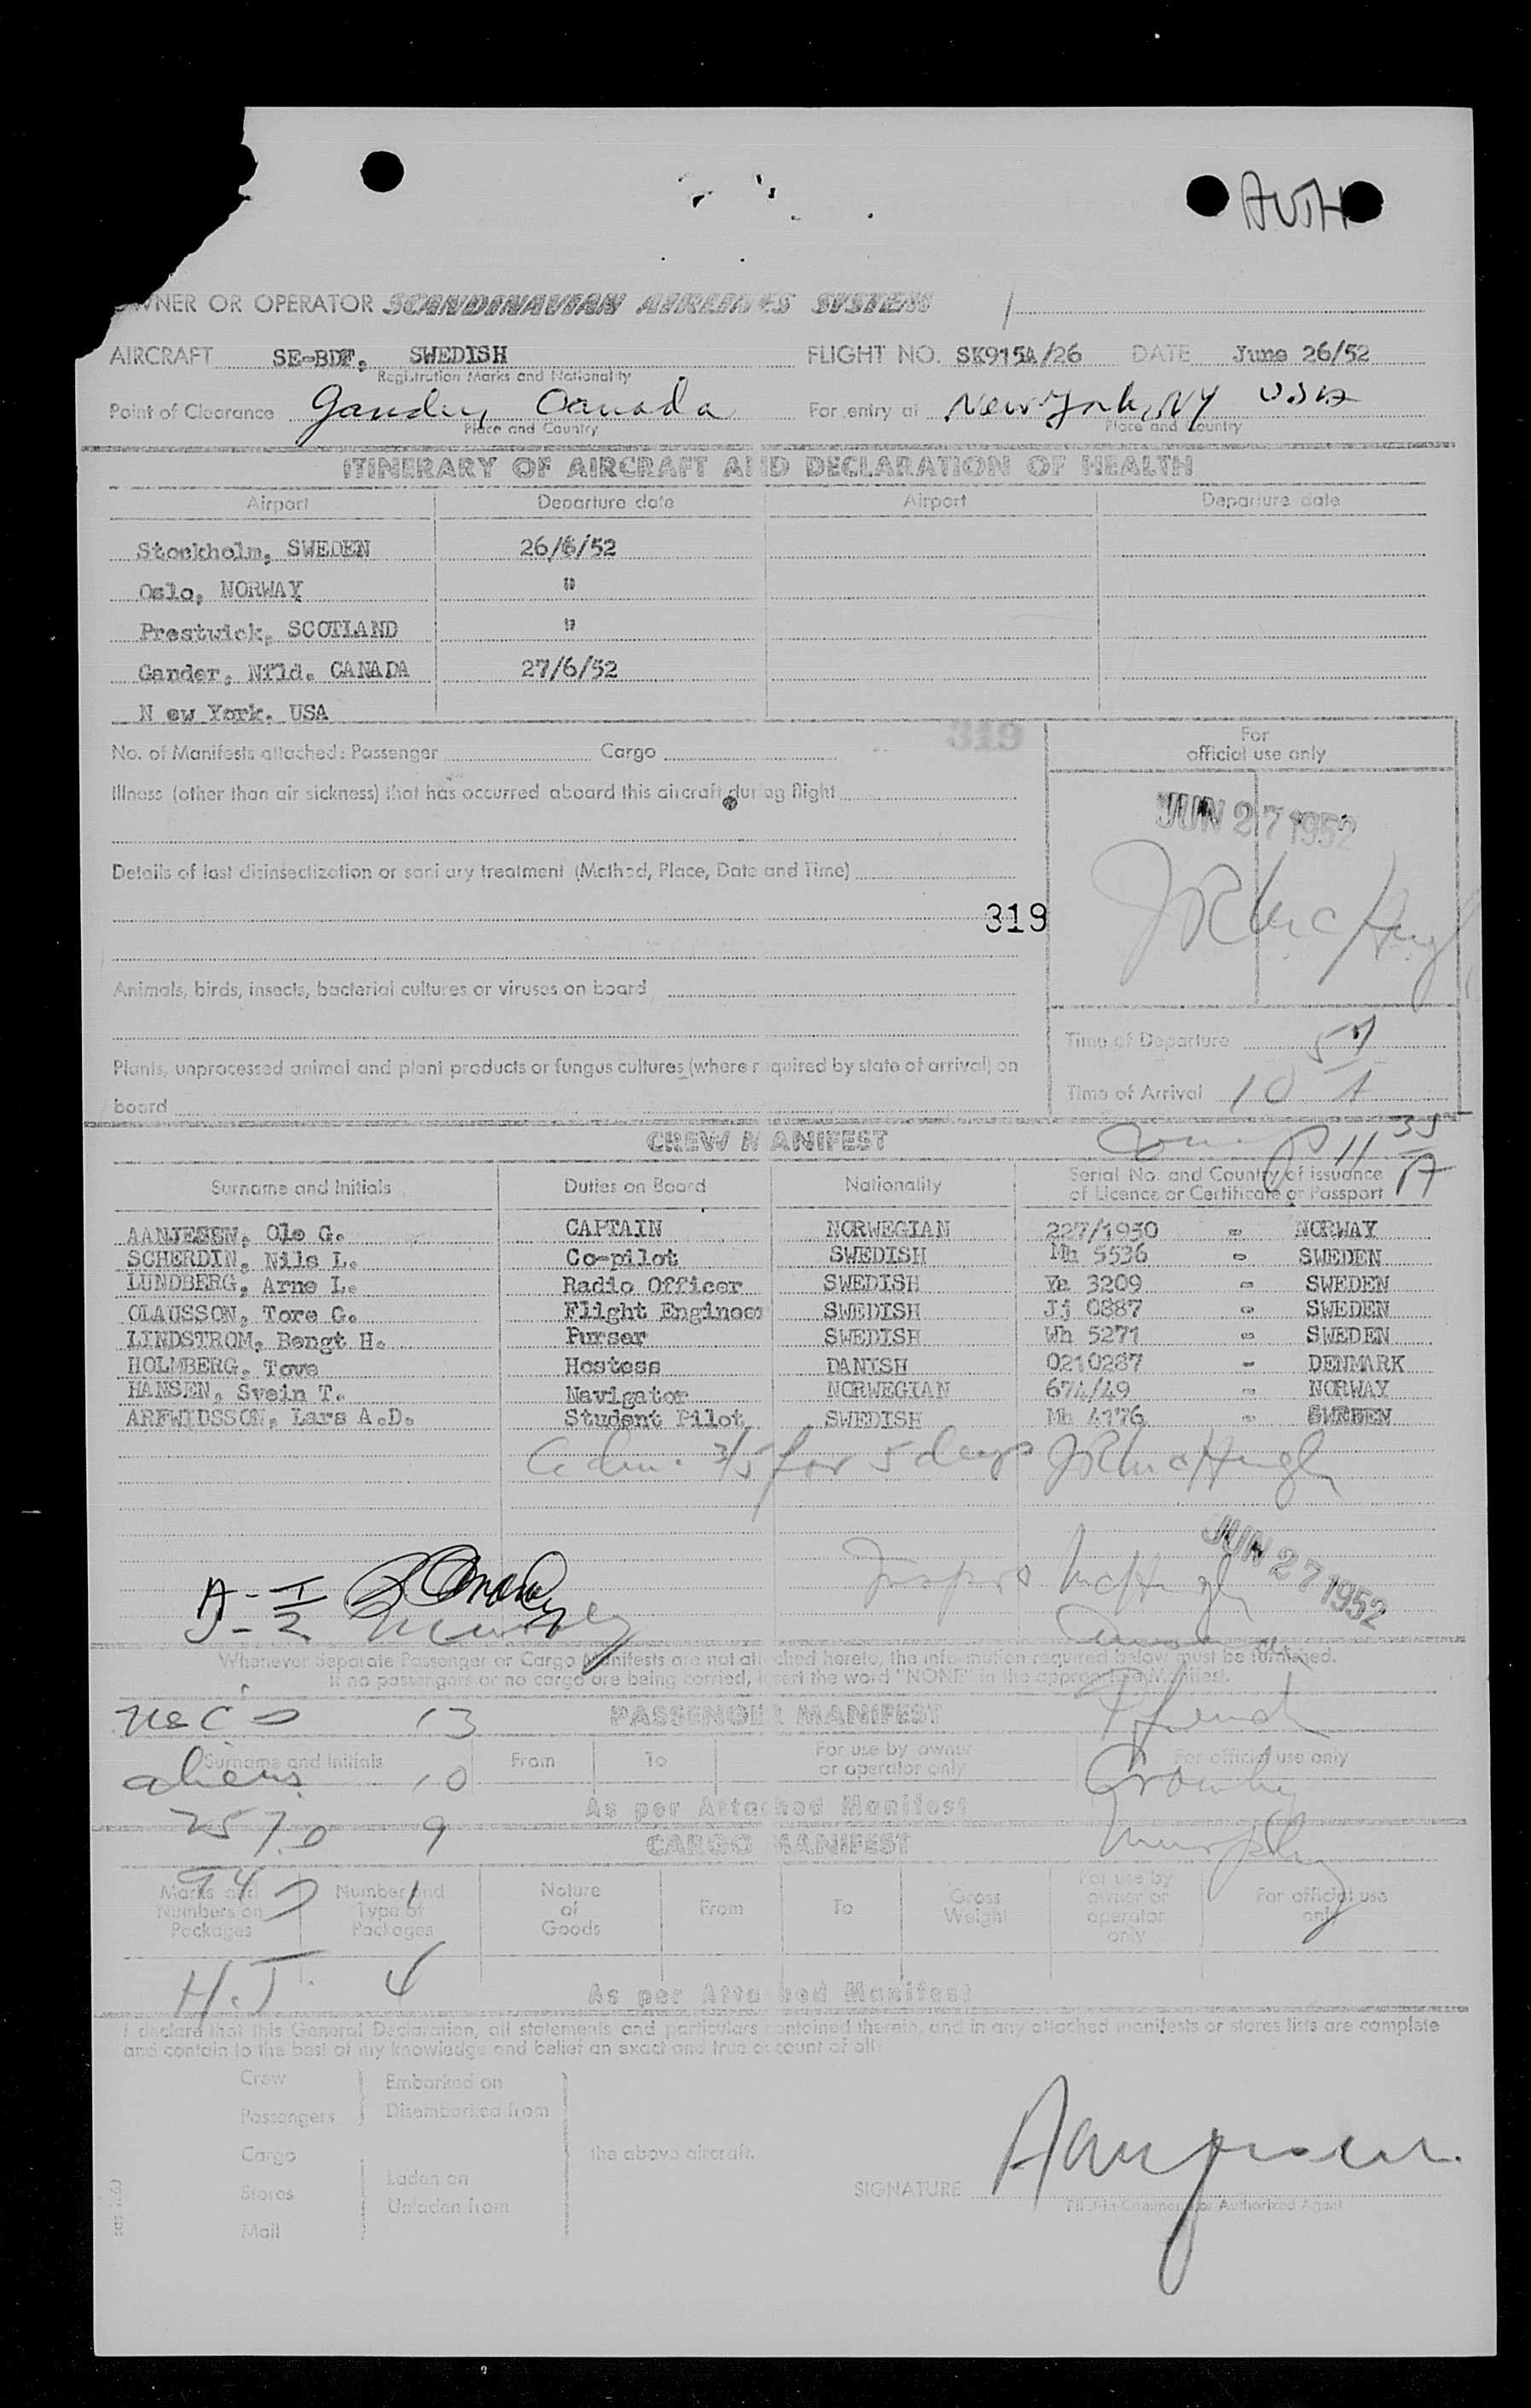 AUTH
OWNER OR OPERATOR SCANDINAVIAN AIRLINES SYSTEM
AIRCRAFT SE-BDF, SWEDISH FLIGHT NO. SK915A/26 DATE June 26/52
Registration Marks and Nationality
Point of Clearance Gander, Canada For entry at New York, NY USA
Place and Country Place and Country
ITINERARY OF AIRCRAFT AND DECLARATION OF HEALTH
Airport Departure date Airport Departure date
Stockholm, SWEDEN 26/6/52
Oslo, NORWAY "
Prestwick, SCOTLAND "
Gander, Nfld. CANADA 27/6/52
N ew York, USA
319
For
official use only
No. of Manifests attached: Passenger Cargo
Illness (other than air sickness) that has occurred aboard this aircraft during flight
JUN 27 1952
Details of last disinsectization or sanitary treatment (Method, Place, Date and Time)
319
JR McHugh
Animals, birds, insects, bacterial cultures or viruses on board
Time of Departure
Plants, unprocessed animal and plant products or fungus cultures (where required by state of arrival) on
board
Time of Arrival 10 A
CREW MANIFEST
11 35 A
Surname and Initials Duties on Board Nationality Serial No. and Country of issuance
of Licence or Certificate or Passport
AANJESEN, Ole G. CAPTAIN NORWEGIAN 227/1950 - NORWAY
SCHERDIN, Nils L. Co-pilot SWEDISH Mh 5536 - SWEDEN
LUNDBERG, Arne L. Radio Officer SWEDISH Ya 3209 - SWEDEN
OLAUSSON, Tore G. Flight Engineer SWEDISH Jj 0887 - SWEDEN
LINDSTROM, Bengt H. Purser SWEDISH Wh 5271 - SWEDEN
HOLMBERG, Tove Hostess DANISH 0210287 - DENMARK
HANSEN, Svein T. Navigator NORWEGIAN 674/49 - NORWAY
ARFWIDSSON, Lars A.D. Student Pilot SWEDISH Mh 4176 - SWEDEN
Adm. 3/5 for 5 days JR McHugh
JUN 27 1952
McHugh
Murphy
Whenever Separate Passenger or Cargo Manifests are not attached hereto, the information required below must be furnished.
If no passengers or no cargo are being carried, insert the word "NONE" in the appropriate Manifest.
13
PASSENGER MANIFEST
Surname and Initials From To For use by owner
or operator only For official use only
aliens 10
Crowley
As per Attached Manifest
9
Murphy
CARGO MANIFEST
Marks and
Numbers on
Packages Number and
Type of
Packages Nature
of
Goods From To Gross
Weight For use by
owner or
operator
only For official use
only
H.T. 4
As per Attached Manifest
I declare that this General Declaration, all statements and particulars contained therein, and in any attached manifests or stores lists are complete
and contain to the best of my knowledge and belief an exact and true account of all:
Crew Embarked on
Passengers Disembarked from
Cargo the above aircraft.
Stores Laden on
Unladen from
Mail
SIGNATURE Aanjesen.
Pilot-in-Command or Authorized Agent